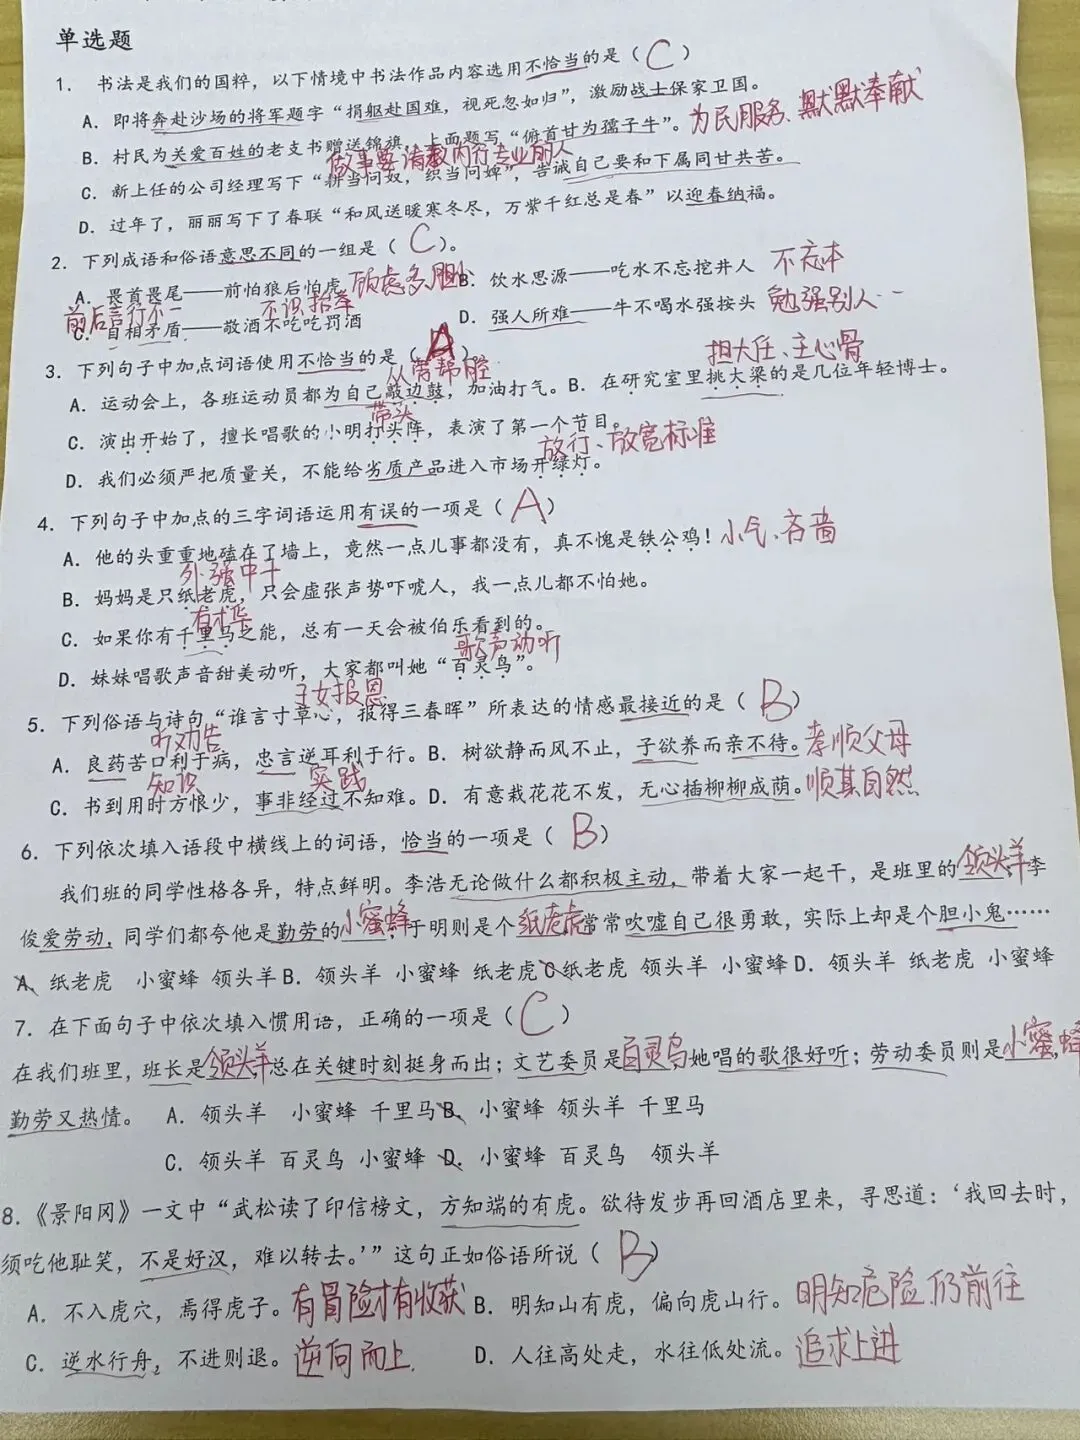 单选题
1. 书法是我们的国粹，以下情境中书法作品内容选用不恰当的是（C）
A. 即将奔赴沙场的将军题字“捐躯赴国难，视死忽如归”，激励战士保家卫国。
为民服务、默默奉献
B. 村民为关爱百姓的老支书赠送锦旗，上面题写“俯首甘为孺子牛”。
做事要请教内行专业的人
C. 新上任的公司经理写下“耕当问奴，织当问婢”，告诫自己要和下属同甘共苦。
D. 过年了，丽丽写下了春联“和风送暖寒冬尽，万紫千红总是春”以迎春纳福。
2. 下列成语和俗语意思不同的一组是（C）。
A. 畏首畏尾——前怕狼后怕虎 顾虑多,胆小 B. 饮水思源——吃水不忘挖井人 不忘本
前后言行不一 不识抬举
C. 自相矛盾——敬酒不吃吃罚酒 D. 强人所难——牛不喝水强按头 勉强别人
3. 下列句子中加点词语使用不恰当的是（A）。
从旁帮腔 担大任、主心骨
A. 运动会上，各班运动员都为自己敲边鼓，加油打气。B. 在研究室里挑大梁的是几位年轻博士。
带头
C. 演出开始了，擅长唱歌的小明打头阵，表演了第一个节目。
放行、放宽标准
D. 我们必须严把质量关，不能给劣质产品进入市场开绿灯。
4. 下列句子中加点的三字词语运用有误的一项是（A）
A. 他的头重重地磕在了墙上，竟然一点儿事都没有，真不愧是铁公鸡！小气、吝啬
外强中干
B. 妈妈是只纸老虎，只会虚张声势吓唬人，我一点儿都不怕她。
有才华
C. 如果你有千里马之能，总有一天会被伯乐看到的。
歌声动听
D. 妹妹唱歌声音甜美动听，大家都叫她“百灵鸟”。
子女报恩
5. 下列俗语与诗句“谁言寸草心，报得三春晖”所表达的情感最接近的是（B）
听劝告
A. 良药苦口利于病，忠言逆耳利于行。B. 树欲静而风不止，子欲养而亲不待。孝顺父母
知识 实践
C. 书到用时方恨少，事非经过不知难。D. 有意栽花花不发，无心插柳柳成荫。顺其自然
6. 下列依次填入语段中横线上的词语，恰当的一项是（B）
我们班的同学性格各异，特点鲜明。李浩无论做什么都积极主动，带着大家一起干，是班里的领头羊李
俊爱劳动，同学们都夸他是勤劳的小蜜蜂于明则是个纸老虎常常吹嘘自己很勇敢，实际上却是个胆小鬼……
A. 纸老虎 小蜜蜂 领头羊 B. 领头羊 小蜜蜂 纸老虎 C 纸老虎 领头羊 小蜜蜂 D. 领头羊 纸老虎 小蜜蜂
7. 在下面句子中依次填入惯用语，正确的一项是（C）
在我们班里，班长是领头羊总在关键时刻挺身而出；文艺委员是百灵鸟她唱的歌很好听；劳动委员则是小蜜蜂，
勤劳又热情。 A. 领头羊 小蜜蜂 千里马 B. 小蜜蜂 领头羊 千里马
C. 领头羊 百灵鸟 小蜜蜂 D. 小蜜蜂 百灵鸟 领头羊
8.《景阳冈》一文中“武松读了印信榜文，方知端的有虎。欲待发步再回酒店里来，寻思道：‘我回去时，
须吃他耻笑，不是好汉，难以转去。’”这句正如俗语所说（B）
A. 不入虎穴，焉得虎子。有冒险才有收获 B. 明知山有虎，偏向虎山行。明知危险,仍前往
C. 逆水行舟，不进则退。逆向而上 D. 人往高处走，水往低处流。追求上进